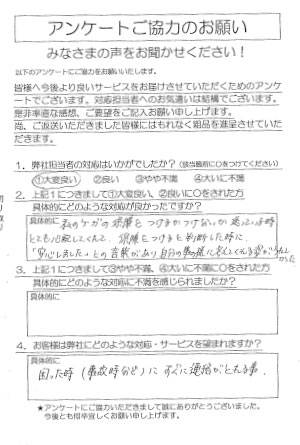 アンケートご協力のお願い
みなさまの声をお聞かせください！
以下のアンケートにご協力をお願いいたします。
皆様へ今後より良いサービスをお届けさせていただくためのアンケ
ートでございます。対応担当者へのお気遣いは結構でございます。
是非率直な感想、ご要望をご記入お願い申し上げます。
尚、ご返送いただきました皆様にはもれなく粗品を進呈させていた
だきます。
1．弊社担当者の対応はいかがでしたか？（該当箇所に○をつけてください）
①大変良い ②良い ③やや不満 ④大いに不満
2．上記1につきまして①大変良い、②良いに○をされた方
具体的にどのような対応が良かったですか？
具体的に 私のケガの保障をつけるかつけないか迷っている時
とても心配してくれて、保障をつけると判断した時に
「安心しました」との言葉があり自分の事の様に考えてくれる姿がうれしかった
3．上記1につきまして③やや不満、④大いに不満に○をされた方
具体的にどのような対応に不満を感じられましたか？
具体的に
4．お客様は弊社にどのような対応・サービスを望まれますか？
具体的に
困った時（事故時など）にすぐに連絡がとれる事。
★アンケートにご協力いただきまして誠にありがとうございました。
今後とも何卒宜しくお願い申し上げます。